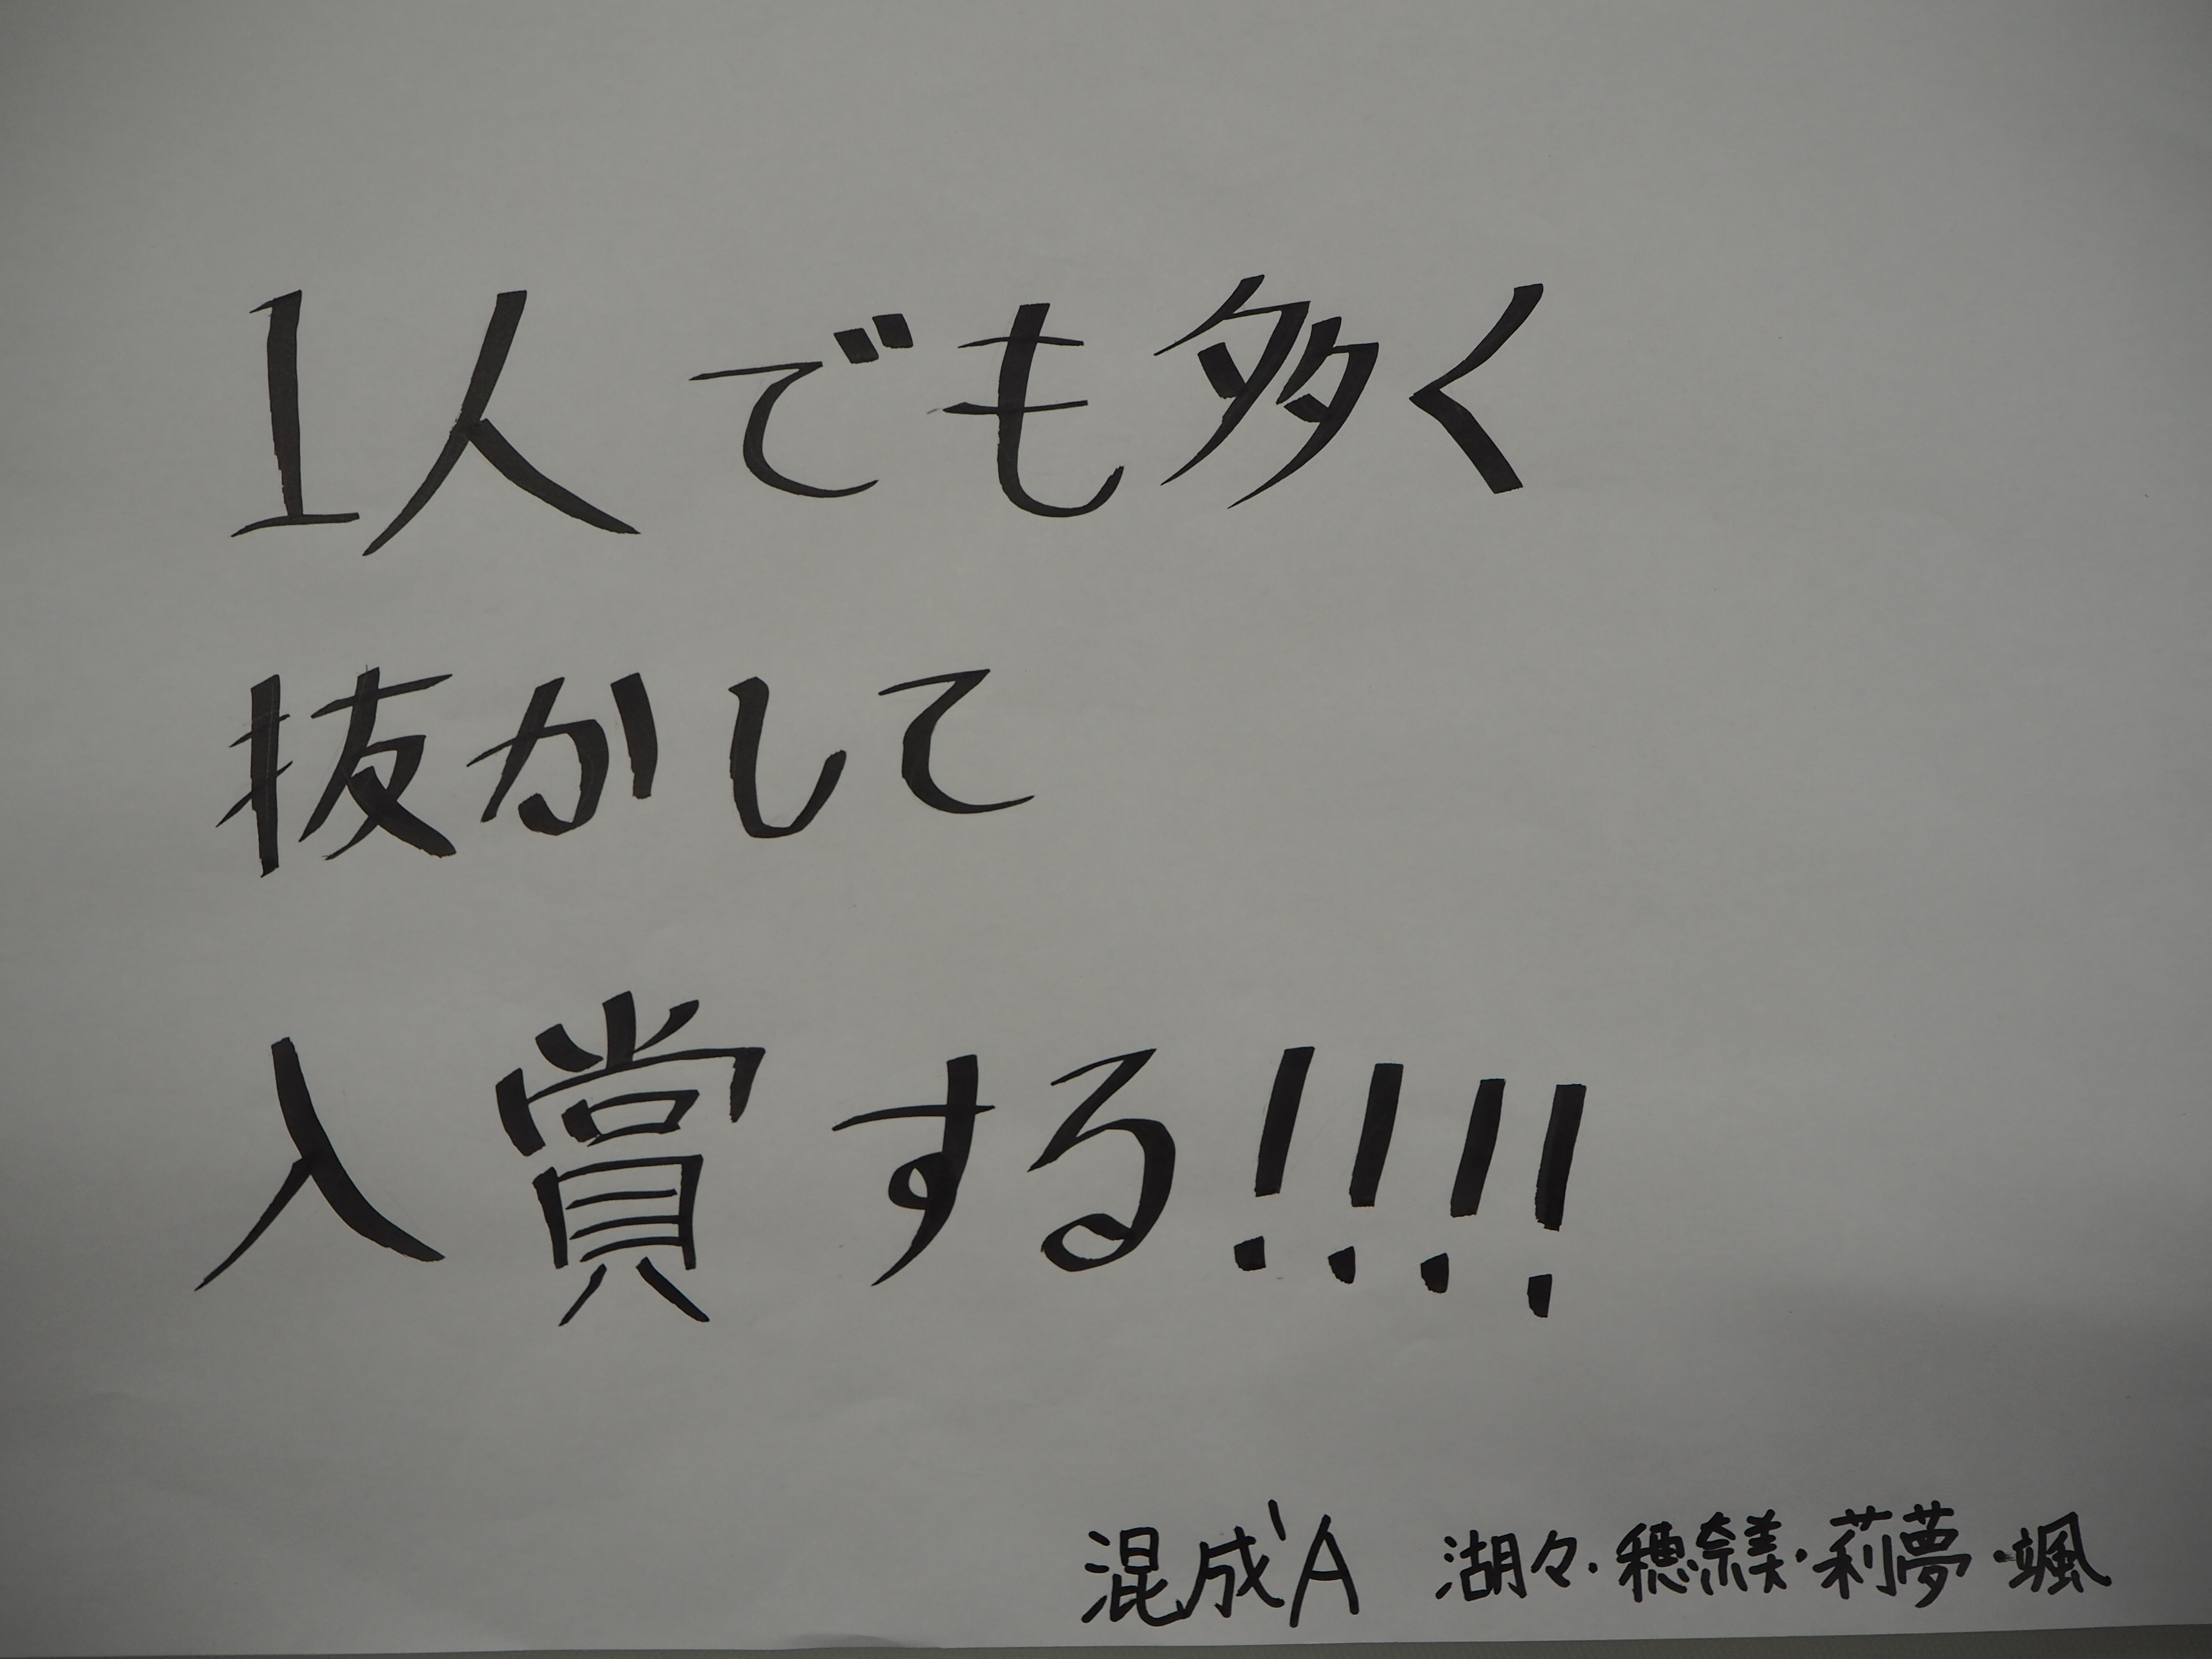 1人でも多く
抜かして
入賞する!!!!
混成A 湖々・穂奈美・莉夢・颯